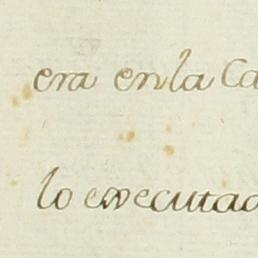 era en la Ca
lo executad